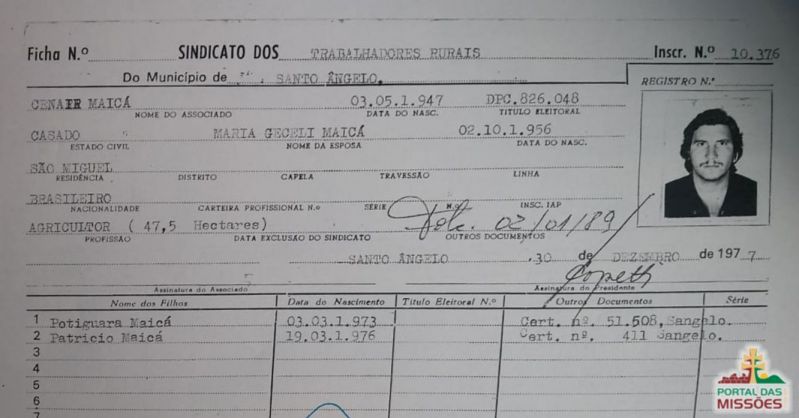 Ficha N.º SINDICATO DOS TRABALHADORES RURAIS Inscr. N.º 10.376
Do Município de SANTO ÂNGELO.
REGISTRO N.º
CENAIR MAICÁ 03.05.1.947 DPC.826.048
NOME DO ASSOCIADO DATA DO NASC. TITULO ELEITORAL
CASADO MARIA GECELI MAICÁ 02.10.1.956
ESTADO CIVIL NOME DA ESPOSA DATA DO NASC.
SÃO MIGUEL
RESIDÊNCIA DISTRITO CAPELA TRAVESSÃO LINHA
BRASILEIRO
NACIONALIDADE CARTEIRA PROFISSIONAL N.º SÉRIE N.º INSC. IAP
AGRICULTOR ( 47,5 Hectares) 02/01/89
PROFISSÃO DATA EXCLUSÃO DO SINDICATO OUTROS DOCUMENTOS
SANTO ÂNGELO .30 de DEZEMBRO de 1977
Assinatura do Associado Assinatura do Presidente
Nome dos Filhos Data do Nascimento Titulo Eleitoral N.º Outros Documentos Série
1 Potiguara Maicá 03.03.1.973 Cert. nº. 51.508, Sangelo.
2 Patricio Maicá 19.03.1.976 Cert. nº. 411 Sangelo.
3
4
5
6
7
PORTAL DAS
MISSÕES